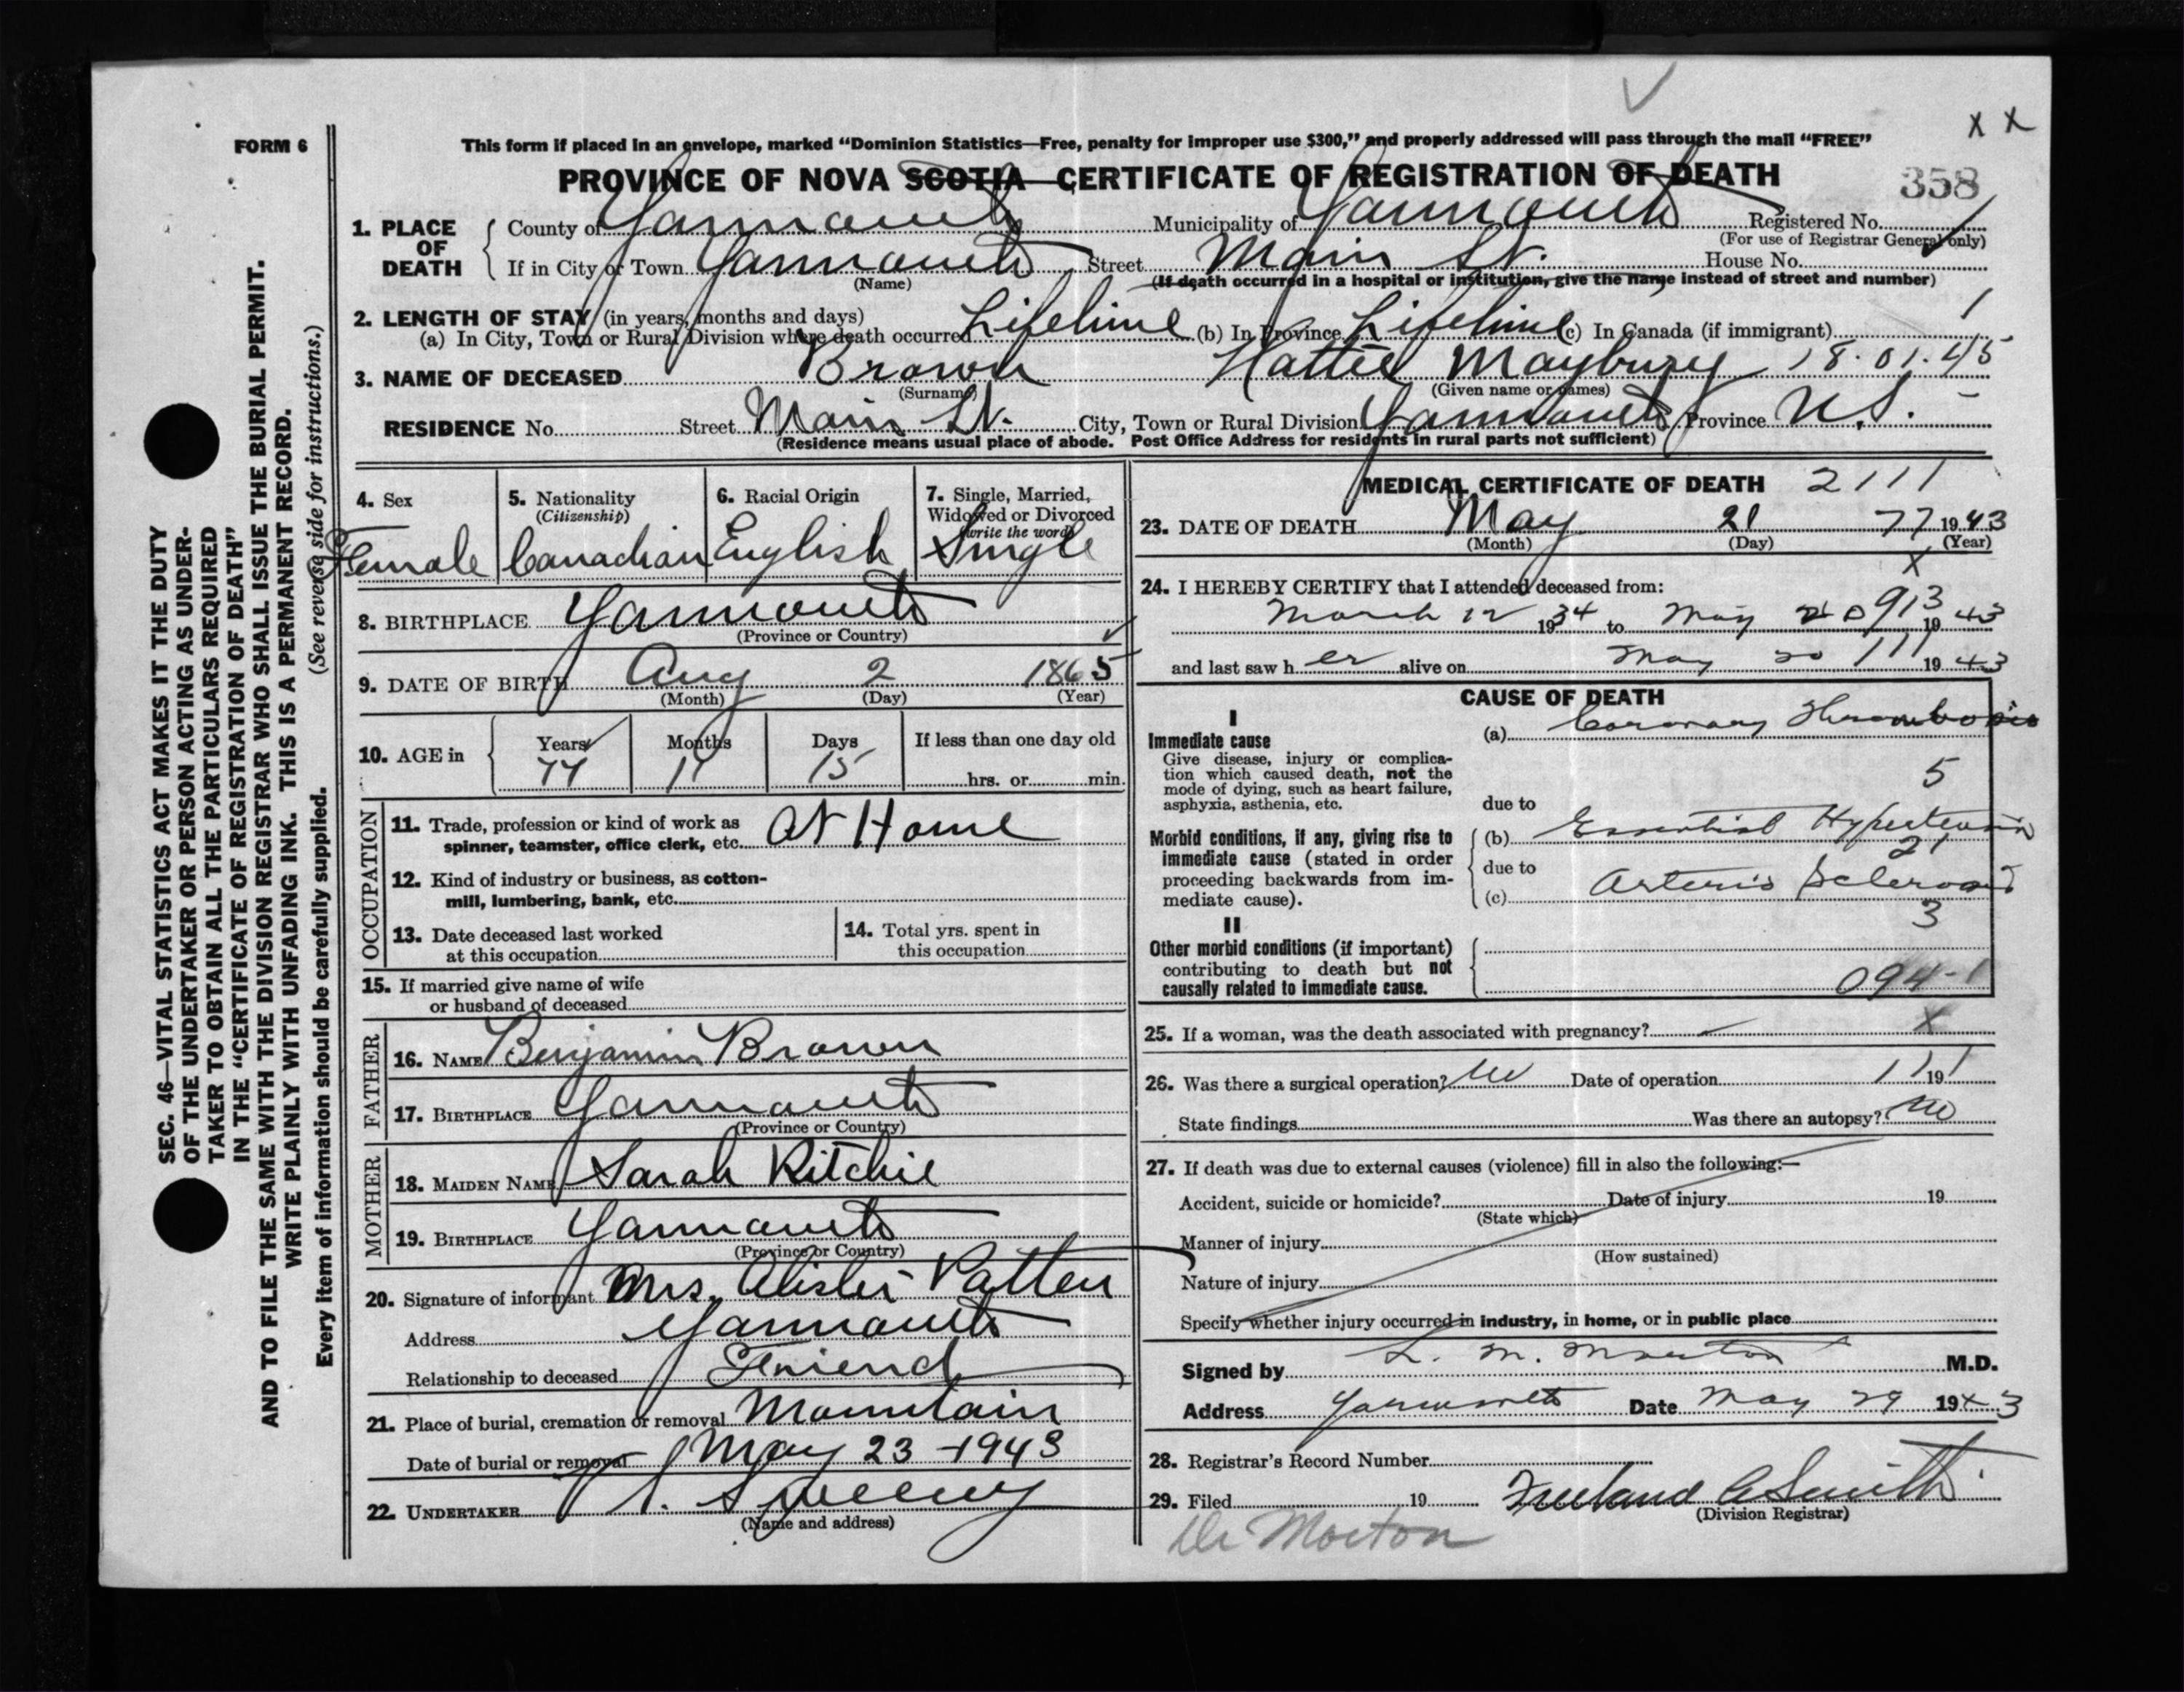 FORM 6
This form if placed in an envelope, marked "Dominion Statistics—Free, penalty for improper use $300," and properly addressed will pass through the mail "FREE"
x x
PROVINCE OF NOVA SCOTIA CERTIFICATE OF REGISTRATION OF DEATH
358
1. PLACE OF DEATH
County of Yarmouth Municipality of Yarmouth Registered No.
(For use of Registrar General only)
If in City or Town Yarmouth Street Main St. House No.
(Name) (If death occurred in a hospital or institution, give the name instead of street and number)
2. LENGTH OF STAY (in years, months and days)
(a) In City, Town or Rural Division where death occurred Lifetime (b) In Province Lifetime (c) In Canada (if immigrant)
3. NAME OF DECEASED Brown Hattie Maybury 18.01.45
(Surname) (Given name or names)
RESIDENCE No. Street Main St. City, Town or Rural Division Yarmouth Province N.S.
(Residence means usual place of abode. Post Office Address for residents in rural parts not sufficient)
4. Sex
Female
5. Nationality
(Citizenship)
Canadian
6. Racial Origin
English
7. Single, Married,
Widowed or Divorced
(write the word)
Single
8. BIRTHPLACE Yarmouth
(Province or Country)
9. DATE OF BIRTH Aug 2 1865
(Month) (Day) (Year)
10. AGE in Years Months Days If less than one day old
77 15
hrs. or min.
OCCUPATION
11. Trade, profession or kind of work as
spinner, teamster, office clerk, etc. At Home
12. Kind of industry or business, as cotton-
mill, lumbering, bank, etc.
13. Date deceased last worked
at this occupation
14. Total yrs. spent in
this occupation
15. If married give name of wife
or husband of deceased
FATHER
16. NAME Benjamin Brown
17. BIRTHPLACE Yarmouth
(Province or Country)
MOTHER
18. MAIDEN NAME Sarah Ritchie
19. BIRTHPLACE Yarmouth
(Province or Country)
20. Signature of informant Mrs. Alister Patten
Address Yarmouth
Relationship to deceased Friend
21. Place of burial, cremation or removal Mountain
Date of burial or removal May 23 - 1943
22. UNDERTAKER V. S. Sweeny
(Name and address)
MEDICAL CERTIFICATE OF DEATH 2111
23. DATE OF DEATH May 21 77 1943
(Month) (Day) (Year)
x
24. I HEREBY CERTIFY that I attended deceased from:
913
March 12 1934 to May 20 1943
and last saw her alive on May 20 111 1943
CAUSE OF DEATH
I
Immediate cause
Give disease, injury or complica-
tion which caused death, not the
mode of dying, such as heart failure,
asphyxia, asthenia, etc.
(a) Coronary Thrombosis
5
due to
Morbid conditions, if any, giving rise to
immediate cause (stated in order
proceeding backwards from im-
mediate cause).
(b) Essential Hypertension
21
due to
(c) Arterio Sclerosis
3
II
Other morbid conditions (if important)
contributing to death but not
causally related to immediate cause.
094-1
25. If a woman, was the death associated with pregnancy? – x
26. Was there a surgical operation? No Date of operation 1 1 19 1
State findings Was there an autopsy? No
27. If death was due to external causes (violence) fill in also the following:—
Accident, suicide or homicide? Date of injury 19
(State which)
Manner of injury
(How sustained)
Nature of injury
Specify whether injury occurred in industry, in home, or in public place
Signed by L. M. Morton M.D.
Address Yarmouth Date May 29 1943
28. Registrar's Record Number
29. Filed 19 Freeland A Smith
(Division Registrar)
Dr Morton
SEC. 46—VITAL STATISTICS ACT MAKES IT THE DUTY
OF THE UNDERTAKER OR PERSON ACTING AS UNDER-
TAKER TO OBTAIN ALL THE PARTICULARS REQUIRED
IN THE "CERTIFICATE OF REGISTRATION OF DEATH"
AND TO FILE THE SAME WITH THE DIVISION REGISTRAR WHO SHALL ISSUE THE BURIAL PERMIT.
WRITE PLAINLY WITH UNFADING INK. THIS IS A PERMANENT RECORD.
Every item of information should be carefully supplied. (See reverse side for instructions.)